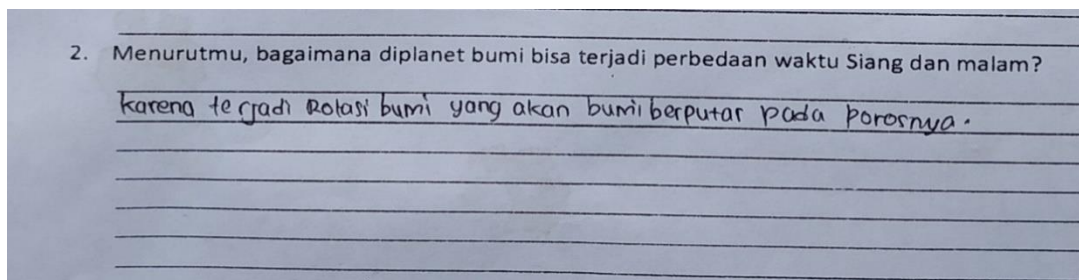 2. Menurutmu, bagaimana diplanet bumi bisa terjadi perbedaan waktu Siang dan malam?
karena terjadi Rotasi bumi yang akan bumi berputar pada porosnya.